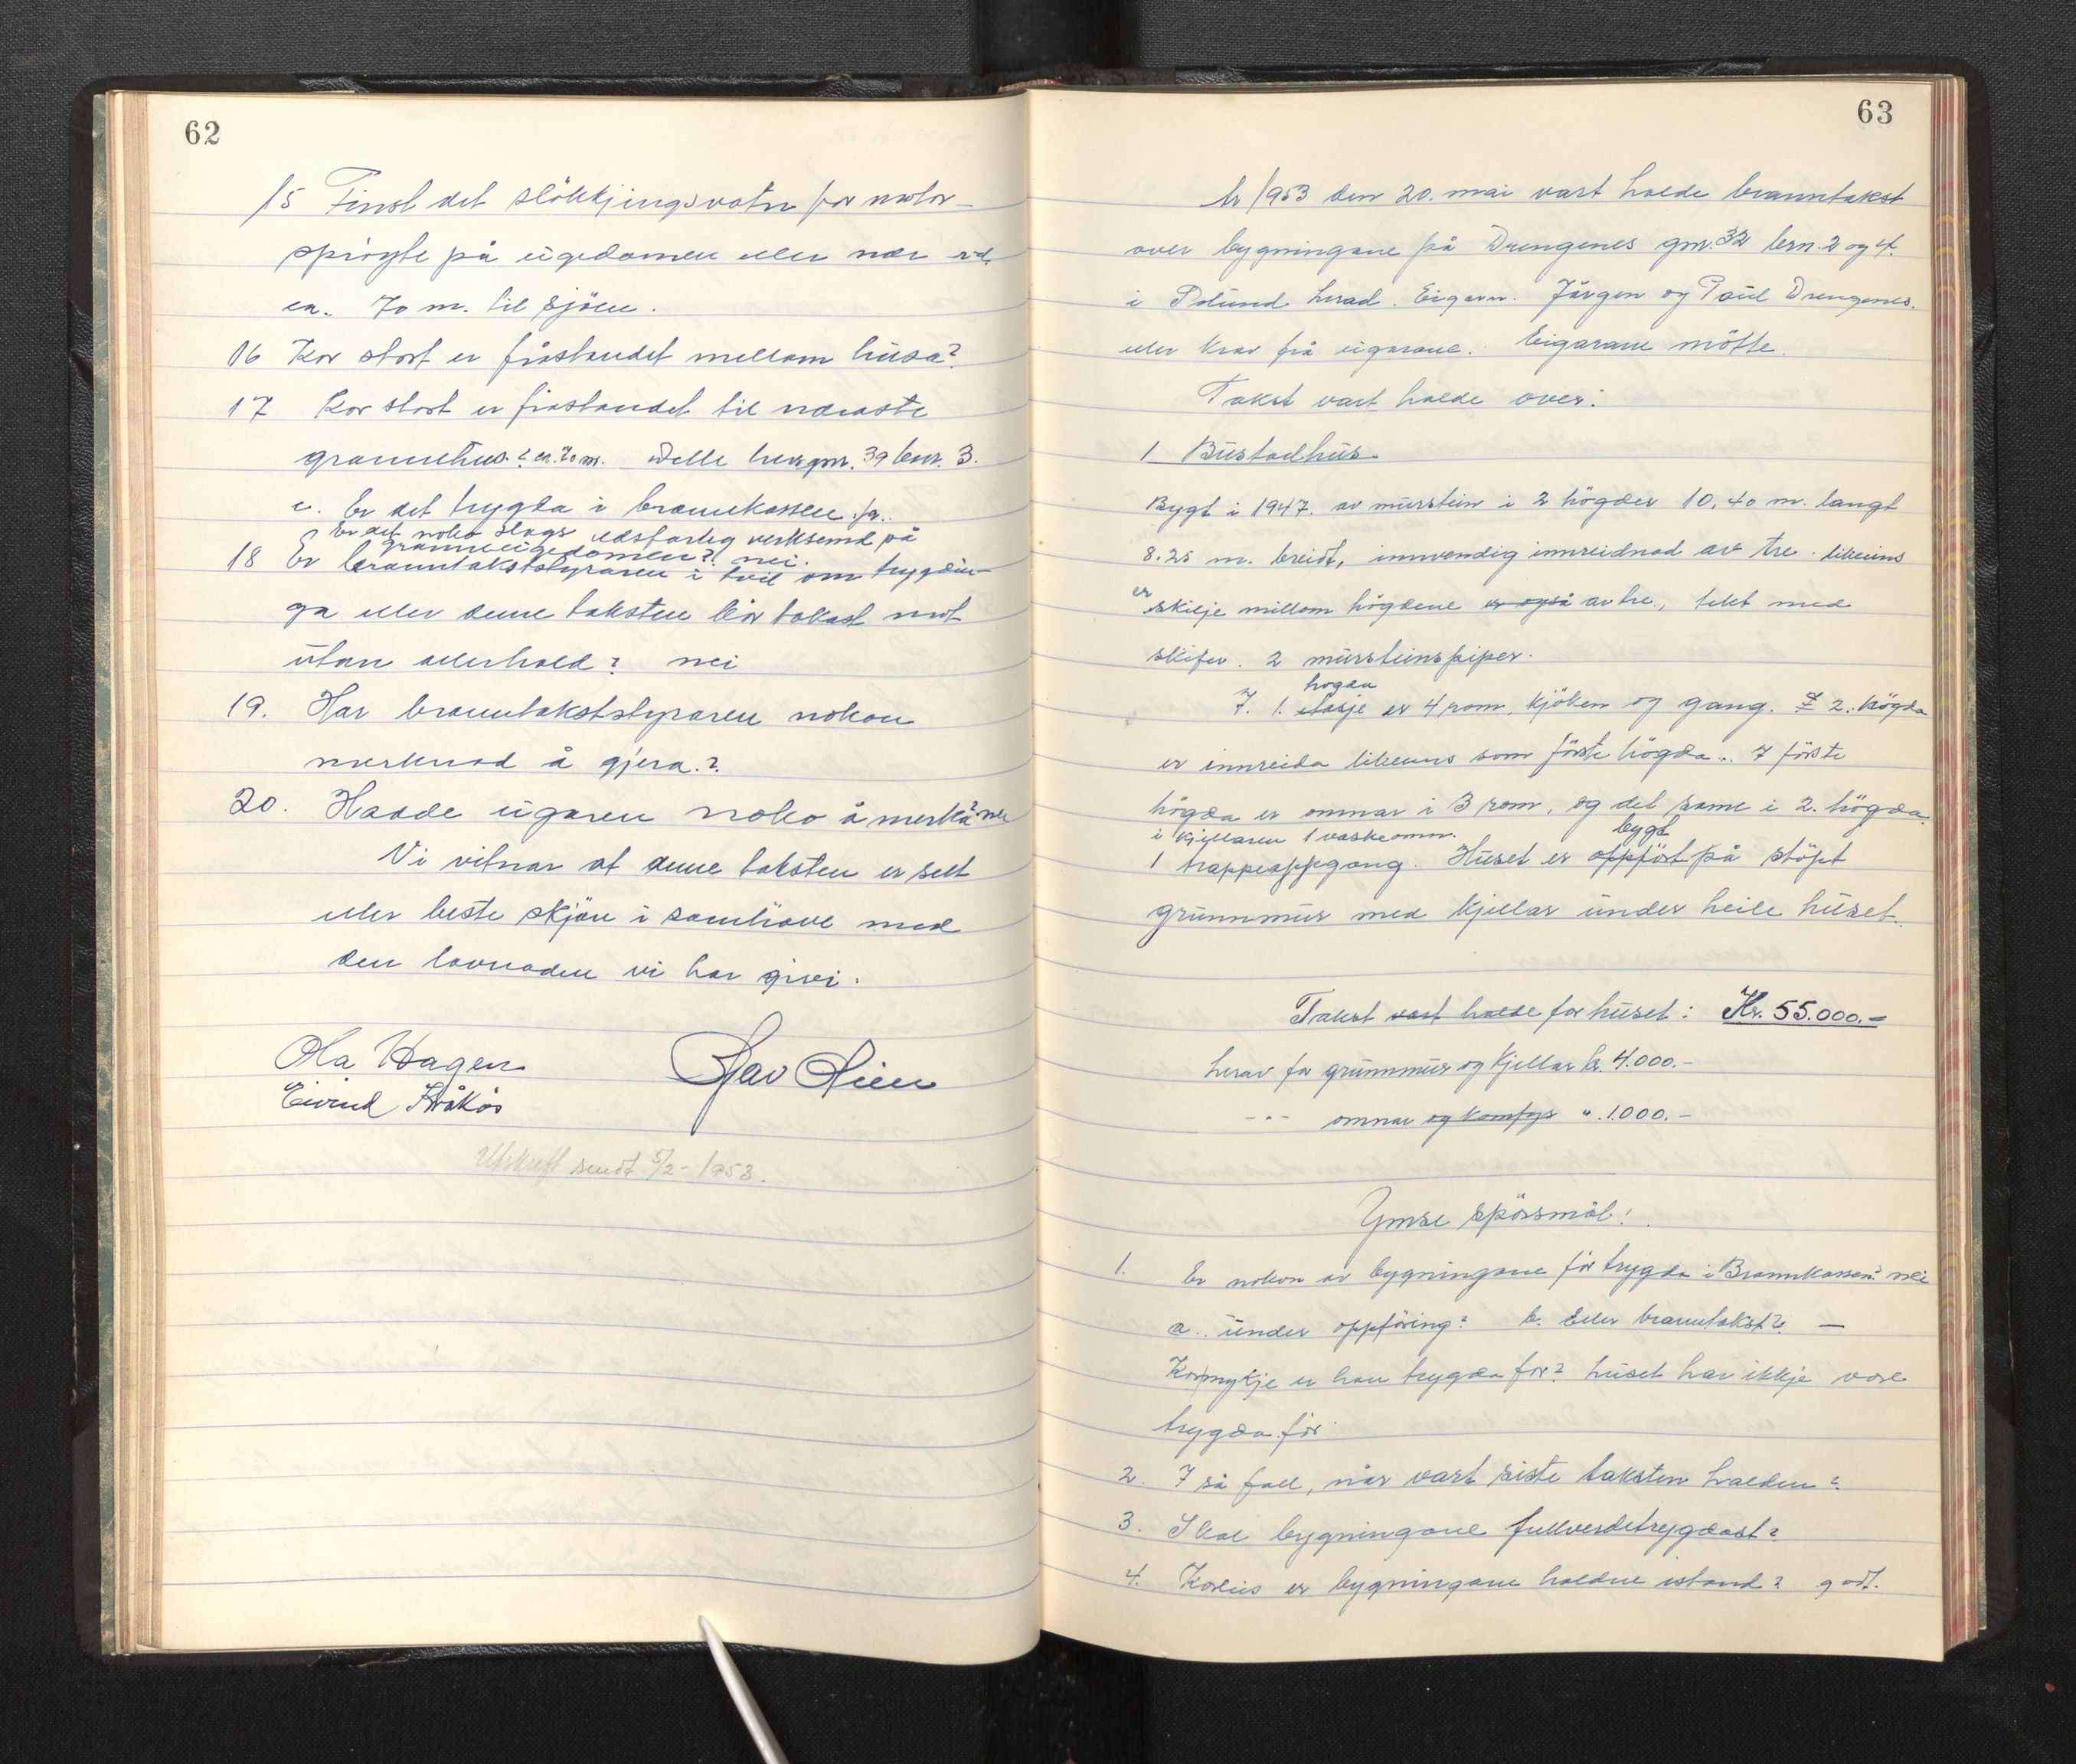 62
15 Finst det slökkjingsvatn for motor-
sprøyte på eigedomen eller nær ved.
ca. 70 m. til sjöen.
16 Kor stort er fråstandet mellom husa?
17 Kor stort er fråstandet til næraste
grannehus? ca. 70 m. Dette hus gnr. 39 bnr. 3.
c. Er det trygda i brannkassen. ja.
Er det noko slags eldsfarleg verksemd på
granneeigedomen? nei.
18 Er branntakststyraren i tvil om trygdin-
ga eller denne taksten bör takast mot
utan atterhald? nei
19. Har branntakststyraren nokon
merknad å gjera.?
20. Hadde eigaren noko å merka? nei
Vi vitnar at denne taksten er sett
etter beste skjön i samhöve med
den lovnaden vi har givi.
Ola Hagen
Eivind
Utskrift sendt 5/2-1953.
63
År 1953 den 20. mai vart halde branntakst
over bygningane på Drengenes gnr. 32 brn. 2 og 4.
i herad. Eigarar. Jörgen og Paul Drengenes.
etter krav frå eigarane. Eigarane mötte.
Takst vart halde over:
1 Bustadhus.
Bygt i 1947. av murstein i 2 högder 10,40 m. langt
8.25 m. breidt, innvendig innreidnad av tre. likeins
er skilje millom högdene er også av tre., tekt med
skifer. 2 mursteinspiper.
högda
I. 1. etasje er 4 rom, kjöken og gang. I 2. högda
er innreida likeeins som förste högda. I förste
högda er omnar i 3 rom, og det same i 2. högda.
i kjellaren 1 vaskeomn. bygt
1 trappeoppgang. Huset er oppfört på stöpt
grunnmur med kjellar under heile huset.
Takst vart halde for huset: Kr. 55.000.-
herav for grunnmur og kjellar kr. 4.000.-
- " - omnar og komfyr " 1.000.-
Ymse spörsmål!
1. Er nokon av bygningane för trygda i Brannkassen? nei
a.. under oppföring? b. Etter branntakst? —
Kormykje er han trygda for? huset har ikkje vore
trygda för.
2. I så fall, når vart siste taksten halden?
3. Skal bygningane fullverdetrygdast?
4. Korleis er bygningane haldne istand? godt.